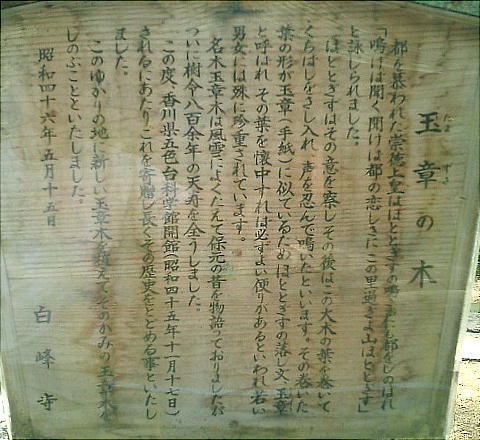 玉章の木
たま ずさ
都を慕われた崇徳上皇はほととぎすの鳴き声にも都をしのばれ
「鳴けば聞く聞けば都の恋しきにこの里過ぎよ山ほととぎす」
と詠じられました。
ほととぎすはその意を察しその後はこの大木の葉を巻いて
くちばしをさし入れ声を忍んで鳴いたといいます。その巻いた
葉の形が玉章(手紙)に似ているためほととぎすの落し文、玉章
と呼ばれその葉を懐中すれば必ずよい便りがあるといわれ若い
男女には殊に珍重されています。
名木玉章木は風雪によくたえて保元の昔を物語っておりましたが
ついに樹令八百余年の天寿を全うしました。
この度、香川県五色台科学館開館(昭和四十五年十一月十七日)
されるにあたりこれを寄贈し長くその歴史をとどめる事といたし
ました。
このゆかりの地に新しい玉章木を植えてそのかみの玉章木を
しのぶことといたしました。
昭和四十六年五月十五日
白峰寺